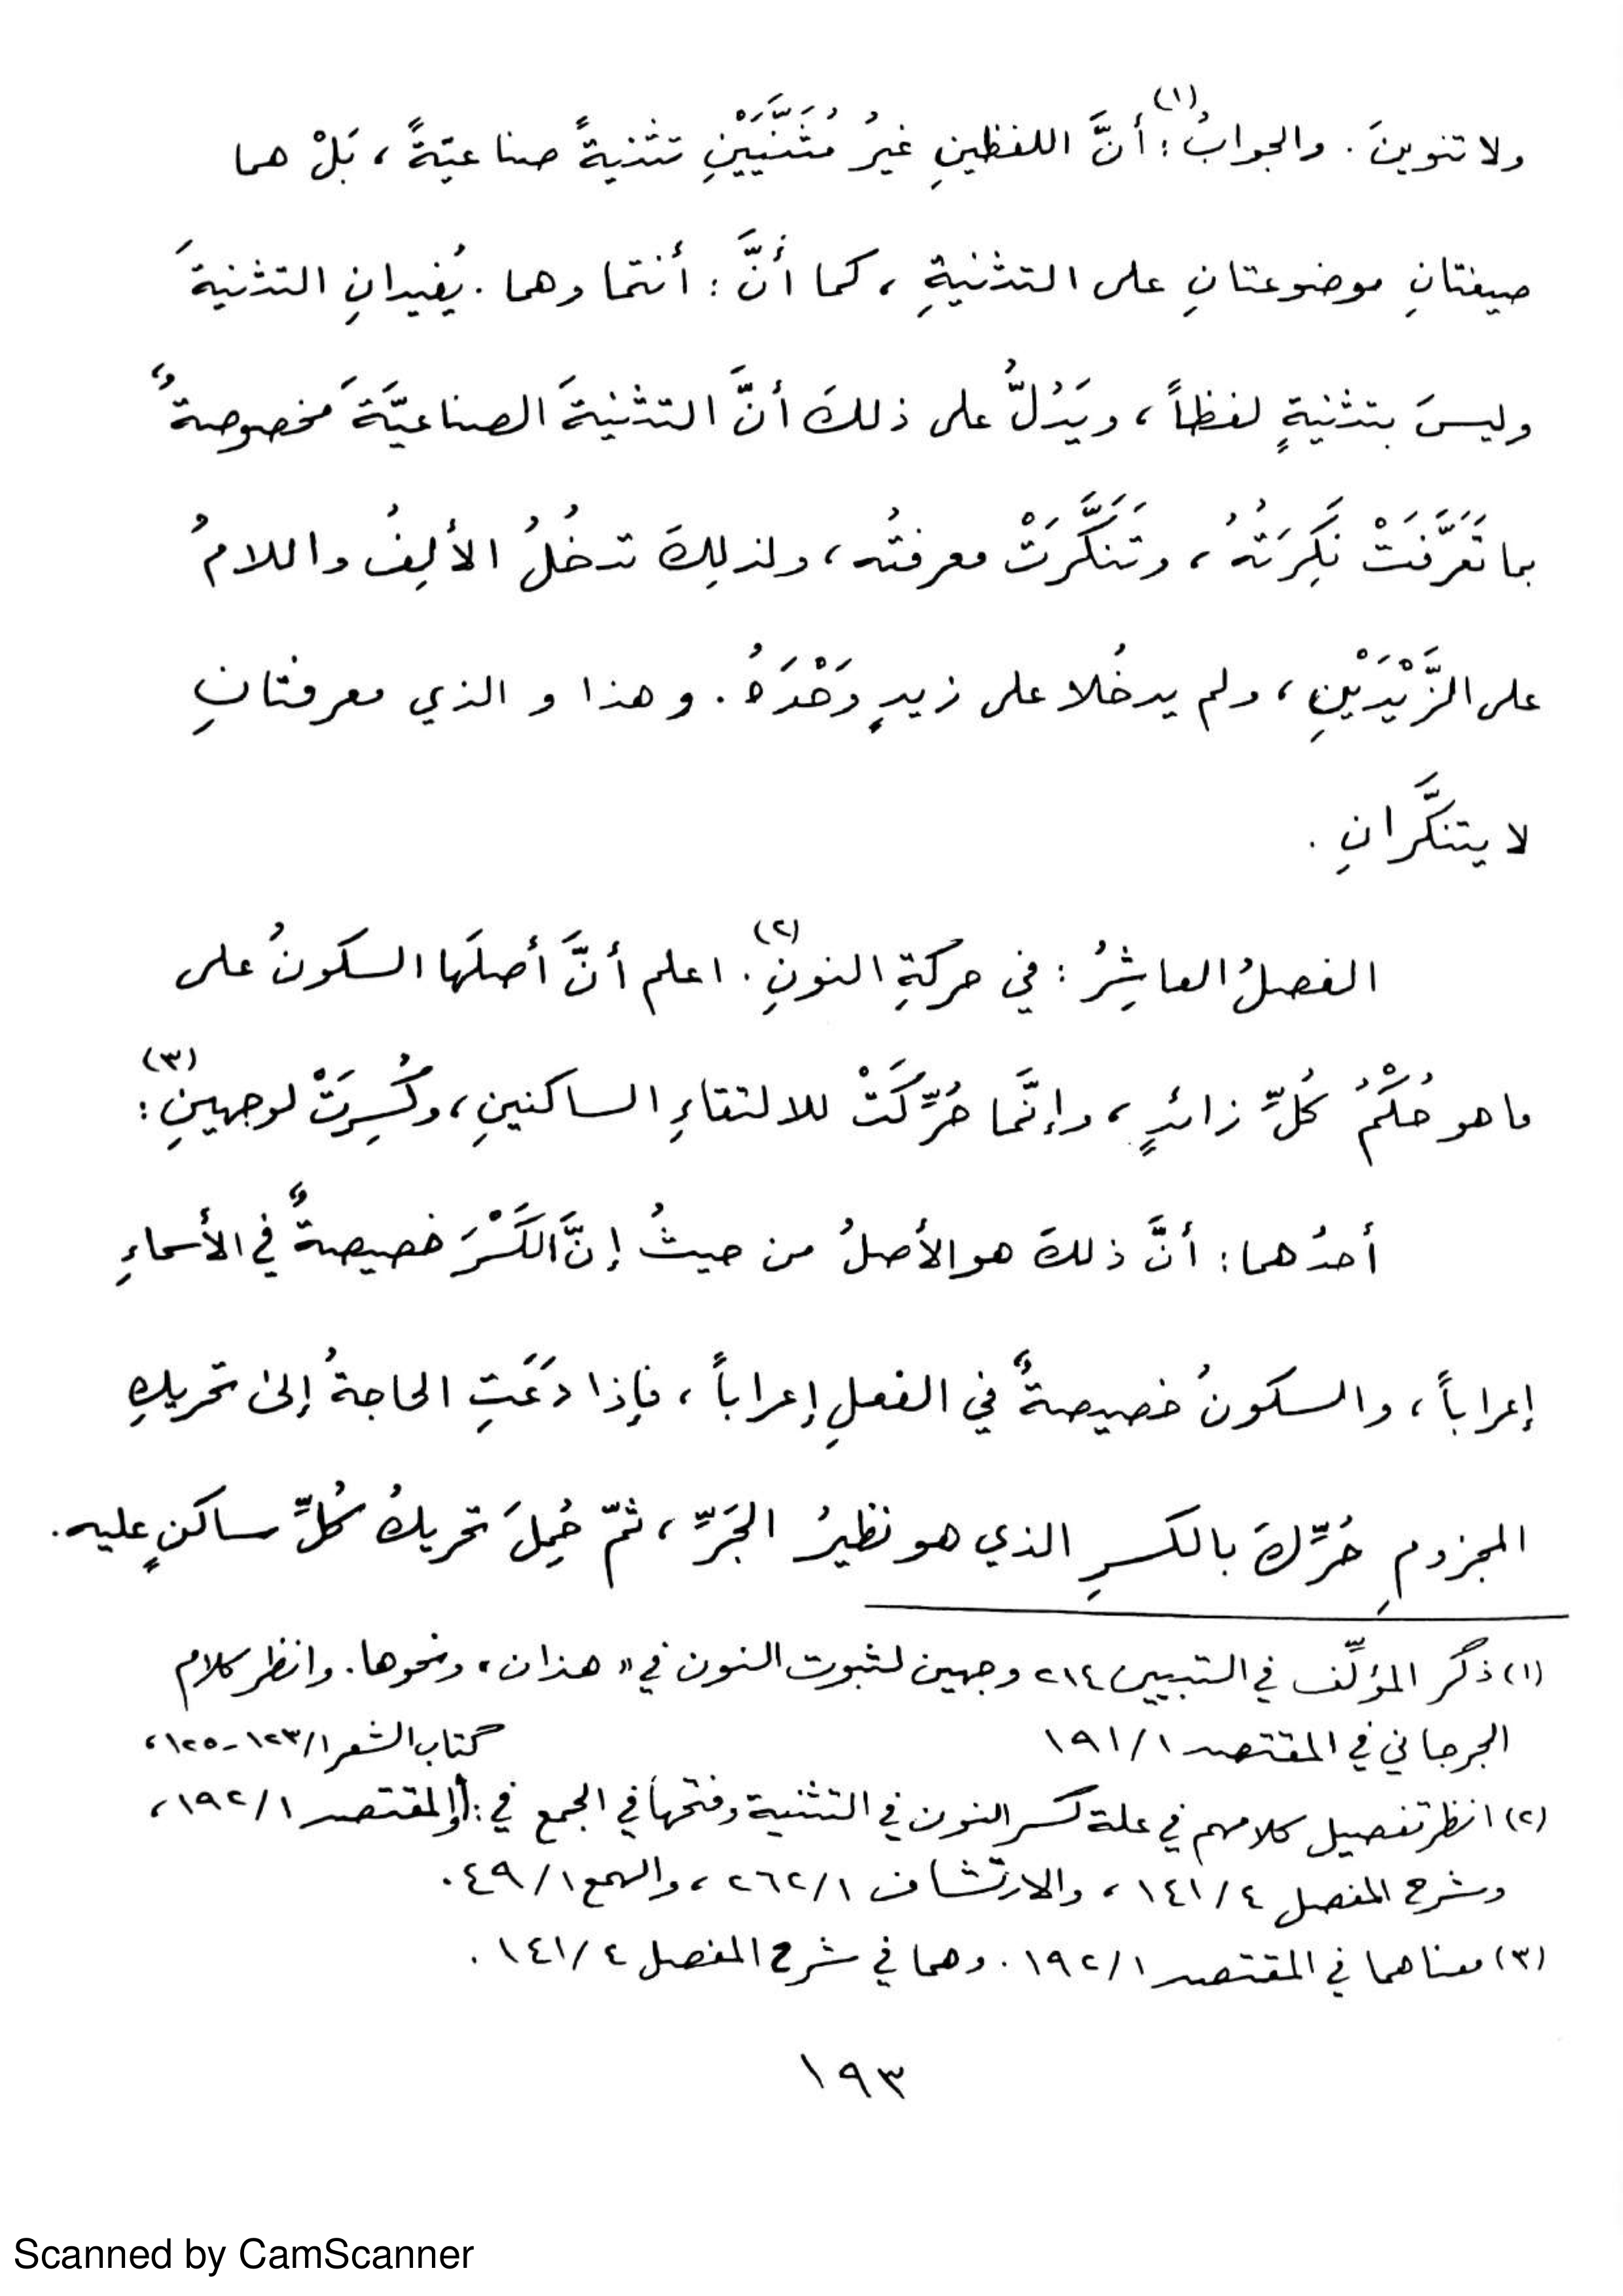 ولا تنوينَ . والجوابُ(١): أنَّ اللفظينِ غيرُ مُثَنَّيَيْنِ تثنيةً صناعيّةً ، بَلْ هما
صيغتانِ موضوعتانِ على التثنيةِ ، كما أنَّ : أنتما وهما . يُفيدانِ التثنيةَ
وليسَ بتثنيةٍ لفظاً ، ويَدُلُّ على ذلكَ أنَّ التثنيةَ الصناعيَّةَ مخصوصةٌ
بما تَعَرَّفَتْ نَكِرَتُهُ ، وتَنَكَّرَتْ معرفتُه ، ولذلِكَ تدخُلُ الألِفُ واللامُ
على الزَّيْدَيْنِ ، ولم يدخُلا على زيدٍ وَحْدَهُ . وهذا و الذي معرفتانِ
لا يتنكَّرانِ .
الفصلُ العاشِرُ : في حركةِ النونِ(٢) . اعلم أنَّ أصلَها السكونُ على
ما هو حُكْمُ كُلِّ زائدٍ ، وإنَّما حُرِّكَتْ للالتقاءِ الساكنينِ ، وكُسِرَتْ لوجهينِ(٣) :
أحدُهما : أنَّ ذلكَ هو الأصلُ من حيثُ إنَّ الكَسْرَ خصيصةٌ في الأسماءِ
إعراباً ، والسكونُ خصيصةٌ في الفعلِ إعراباً ، فإذا دَعَتِ الحاجةُ إلىٰ تحريكِ
المجزومِ حُرِّكَ بالكسرِ الذي هو نظيرُ الجَرِّ ، ثمّ حُمِلَ تحريكُ كُلِّ ساكنٍ عليه .
(١) ذكر المؤلِّف في التبيين ٢١٤ وجهين لثبوت النون في " هذان " ونحوها . وانظر كلام
الجرجاني في المقتصد ١/١٩١
كتاب الشعر ١/١٢٣-١٢٥ ،
(٢) انظر تفصيل كلامهم في علة كسر النون في التثنية وفتحها في الجمع في : والمقتصد ١/١٩٢ ،
وشرح المفصل ٤/١٤١ ، والارتشاف ١/٢٦٢ ، والهمع ١/٤٩ .
(٣) معناهما في المقتصد ١/١٩٢ . وهما في شرح المفصل ٤/١٤١ .
١٩٣
Scanned by CamScanner